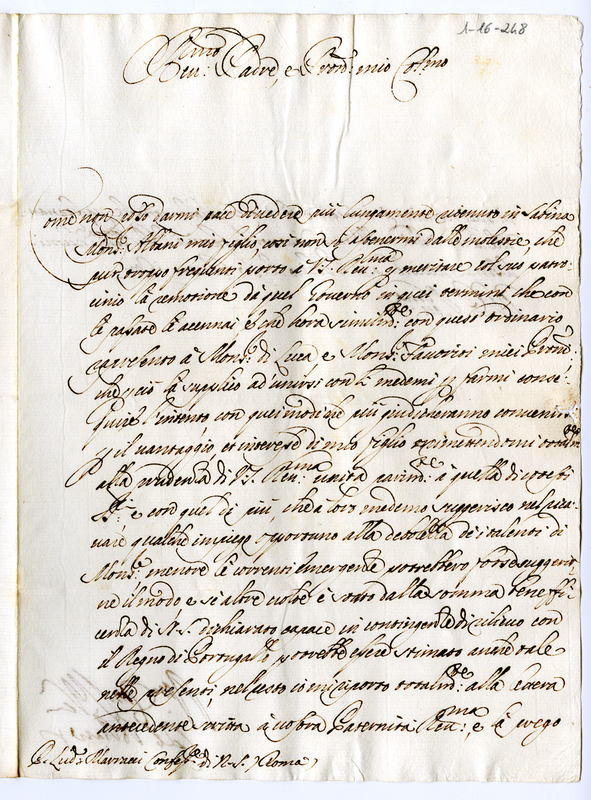 1-16-248
Rev:mo Padre, e Pron: mio Col:mo
Come non posso darmi pace di vedere più lungamente ritenuto in Sabina
Mons:r Albani mio figlio, così non sò astenermi dalle molestie, che
pur troppo frequenti porto a V. P. Rev:ma p meritare col suo patro-
cinio la remotione da quel Governo in quei termini che con
le passate le acennai e che hora con quest' ordinario
rapresento à Mons:r di Luca e Mons:r Favoriti miei Pron:i,
che p ciò la supplico ad unirsi con li medemi p farmi conse-
guire l'intento con quei modi che più giudicheranno convenire
p il vantaggio et interesse di mio figlio rimettendomi total:te
alla prudenza di V. P. Rev:ma unita à quella di
e con quel di più, che à loro medemo suggerisco nel
qualche impiego opportuno alla debolezza de' talenti di
Mons:r mentre le correnti emergenze potrebbero forse suggerir
ne il modo e si altre volte è stato dalla somma beneffi-
cenza di N. S. dichiarato capace in contingenze di rilievo con
il Regno di Portugallo potrebbe essere stimato anche tale
nelle presenti, nel resto io mi riporto total:te alla lettera
antecedente scritta à vostra Paternità Rev:ma e la prego
P. Lud:o Marracci Confess:re di N. S. (Roma)